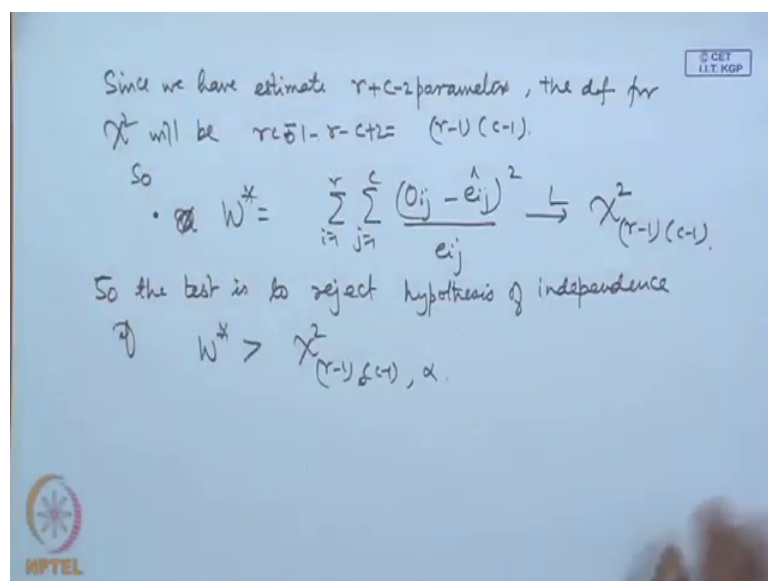 © CET
I.I.T. KGP
Since we have estimate r+c-2 parameters, the df for
χ² will be rc-1-r-c+2= (r-1)(c-1).
So
W* = Σ_{i=1}^{r} Σ_{j=1}^{c} (O_{ij} - ê_{ij})² / e_{ij} →^L χ²_{(r-1)(c-1)}.
So the test is to reject hypothesis of independence
if W* > χ²_{(r-1)(c-1), α}.
NPTEL